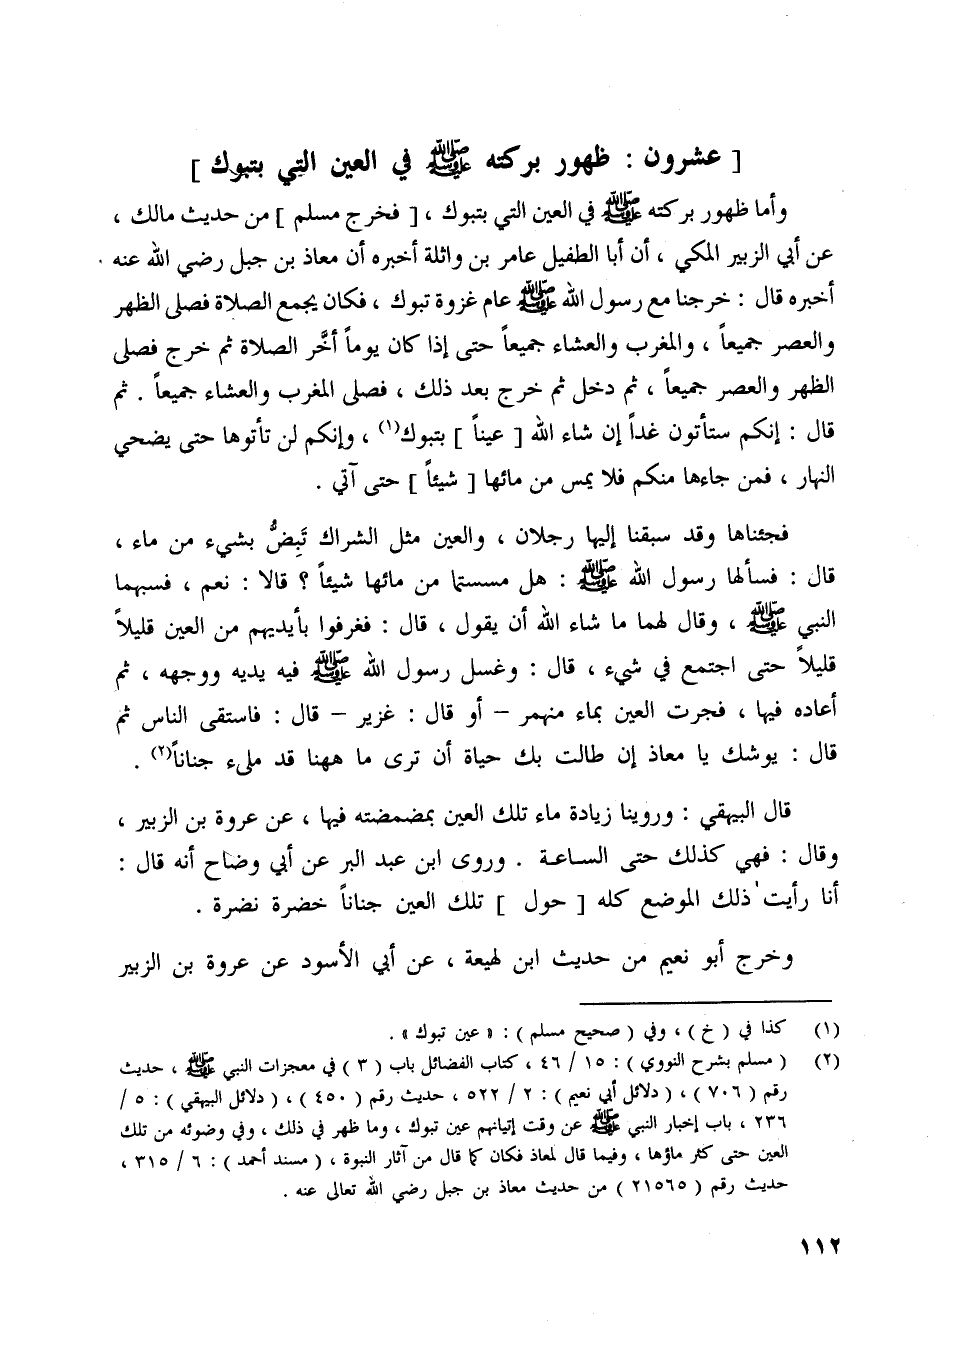 [ عشرون : ظهور بركته ﷺ في العين التي بتبوك ]
وأما ظهور بركته ﷺ في العين التي بتبوك ، [ فخرج مسلم ] من حديث مالك ،
عن أبي الزبير المكي ، أن أبا الطفيل عامر بن واثلة أخبره أن معاذ بن جبل رضي الله عنه
أخبره قال : خرجنا مع رسول الله ﷺ عام غزوة تبوك ، فكان يجمع الصلاة فصلى الظهر
والعصر جميعاً ، والمغرب والعشاء جميعاً حتى إذا كان يوماً أخَّر الصلاة ثم خرج فصلى
الظهر والعصر جميعاً ، ثم دخل ثم خرج بعد ذلك ، فصلى المغرب والعشاء جميعاً . ثم
قال : إنكم ستأتون غداً إن شاء الله [ عيناً ] بتبوك(١) ، وإنكم لن تأتوها حتى يضحي
النهار ، فمن جاءها منكم فلا يمس من مائها [ شيئاً ] حتى آتي .
فجئناها وقد سبقنا إليها رجلان ، والعين مثل الشراك تَبِضُّ بشيء من ماء ،
قال : فسألها رسول الله ﷺ : هل مسستما من مائها شيئاً ؟ قالا : نعم ، فسبهما
النبي ﷺ ، وقال لهما ما شاء الله أن يقول ، قال : فغرفوا بأيديهم من العين قليلاً
قليلاً حتى اجتمع في شيء ، قال : وغسل رسول الله ﷺ فيه يديه ووجهه ، ثم
أعاده فيها ، فجرت العين بماء منهمر – أو قال : غزير – قال : فاستقى الناس ثم
قال : يوشك يا معاذ إن طالت بك حياة أن ترى ما ههنا قد ملىء جناناً(٢) .
قال البيهقي : وروينا زيادة ماء تلك العين بمضمضته فيها ، عن عروة بن الزبير ،
وقال : فهي كذلك حتى الساعة . وروى ابن عبد البر عن أبي وضاح أنه قال :
أنا رأيت ذلك الموضع كله [ حول ] تلك العين جناناً خضرة نضرة .
وخرج أبو نعيم من حديث ابن لهيعة ، عن أبي الأسود عن عروة بن الزبير
(١) كذا في ( خ ) ، وفي ( صحيح مسلم ) : « عين تبوك » .
(٢) ( مسلم بشرح النووي ) : ١٥ / ٤٦ ، كتاب الفضائل باب ( ٣ ) في معجزات النبي ﷺ ، حديث
رقم ( ٧٠٦ ) ، ( دلائل أبي نعيم ) : ٢ / ٥٢٢ ، حديث رقم ( ٤٥٠ ) ، ( دلائل البيهقي ) : ٥ /
٢٣٦ ، باب إخبار النبي ﷺ عن وقت إتيانهم عين تبوك ، وما ظهر في ذلك ، وفي وضوئه من تلك
العين حتى كثر ماؤها ، وفيما قال لمعاذ فكان كما قال من آثار النبوة ، ( مسند أحمد ) : ٦ / ٣١٥ ،
حديث رقم ( ٢١٥٦٥ ) من حديث معاذ بن جبل رضي الله تعالى عنه .
١١٢